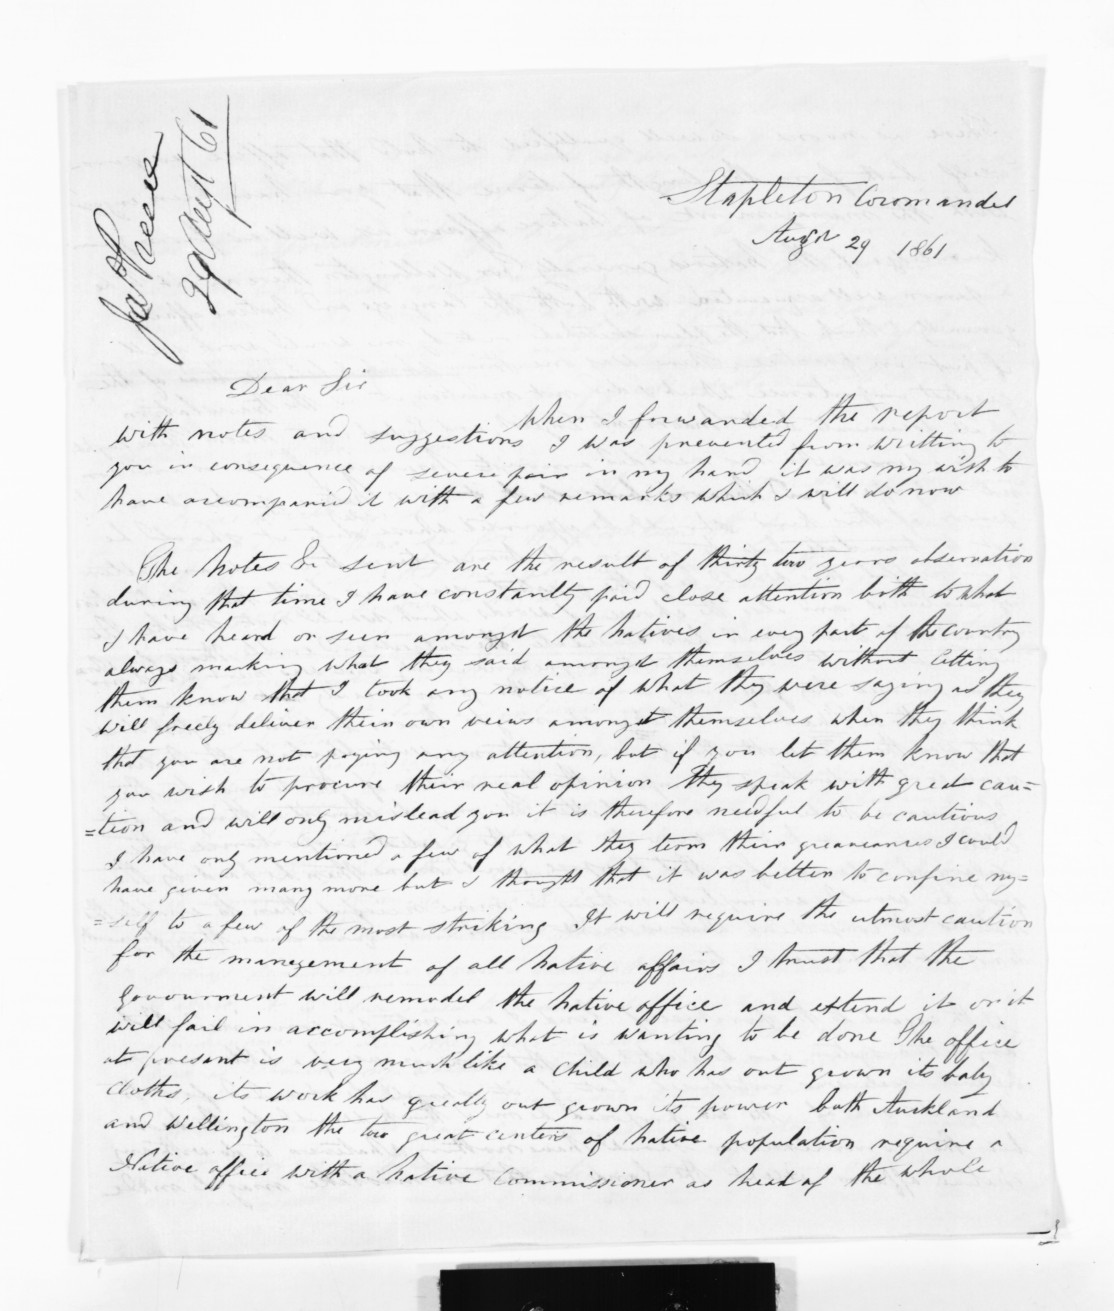 Jas Preece
29 August 61
Stapleton Coromandel
Augst 29 1861
Dear Sir
When I forwanded the report
with notes and suggestions I was prevented from writting to
you in consequence of severe pain in my hand it was my wish to
have accompanied it with a few remarks which I will do now
The Notes &c sent are the result of thirty two years observation
during that time I have constantly paid close attention both to what
I have heard or seen amongst the Natives in every part of the country
always marking what they said amongst themselves without letting
them know that I took any notice of what they were saying as they
will freely deliver their own veiws amongst themselves when they think
that you are not paying any attention, but if you let them know that
you wish to procure their real opinion they speak with great cau=
=tion and will only mislead you it is therefore needful to be cautious
I have only mentioned a few of what they term their greaveances I could
have given many more but I thought that it was better to confine my=
=self to a few of the most striking It will require the utmost caution
for the management of all Native affairs I trust that the
Govournment will remodel the Native office and extend it or it
will fail in accomplishing what is wanting to be done The office
at present is very much like a child who has out grown its baby
cloths, its work has greatly out grown its power both Auckland
and Wellington the two great centers of Native population require a
Native office with a Native Commissioner as head of the whole